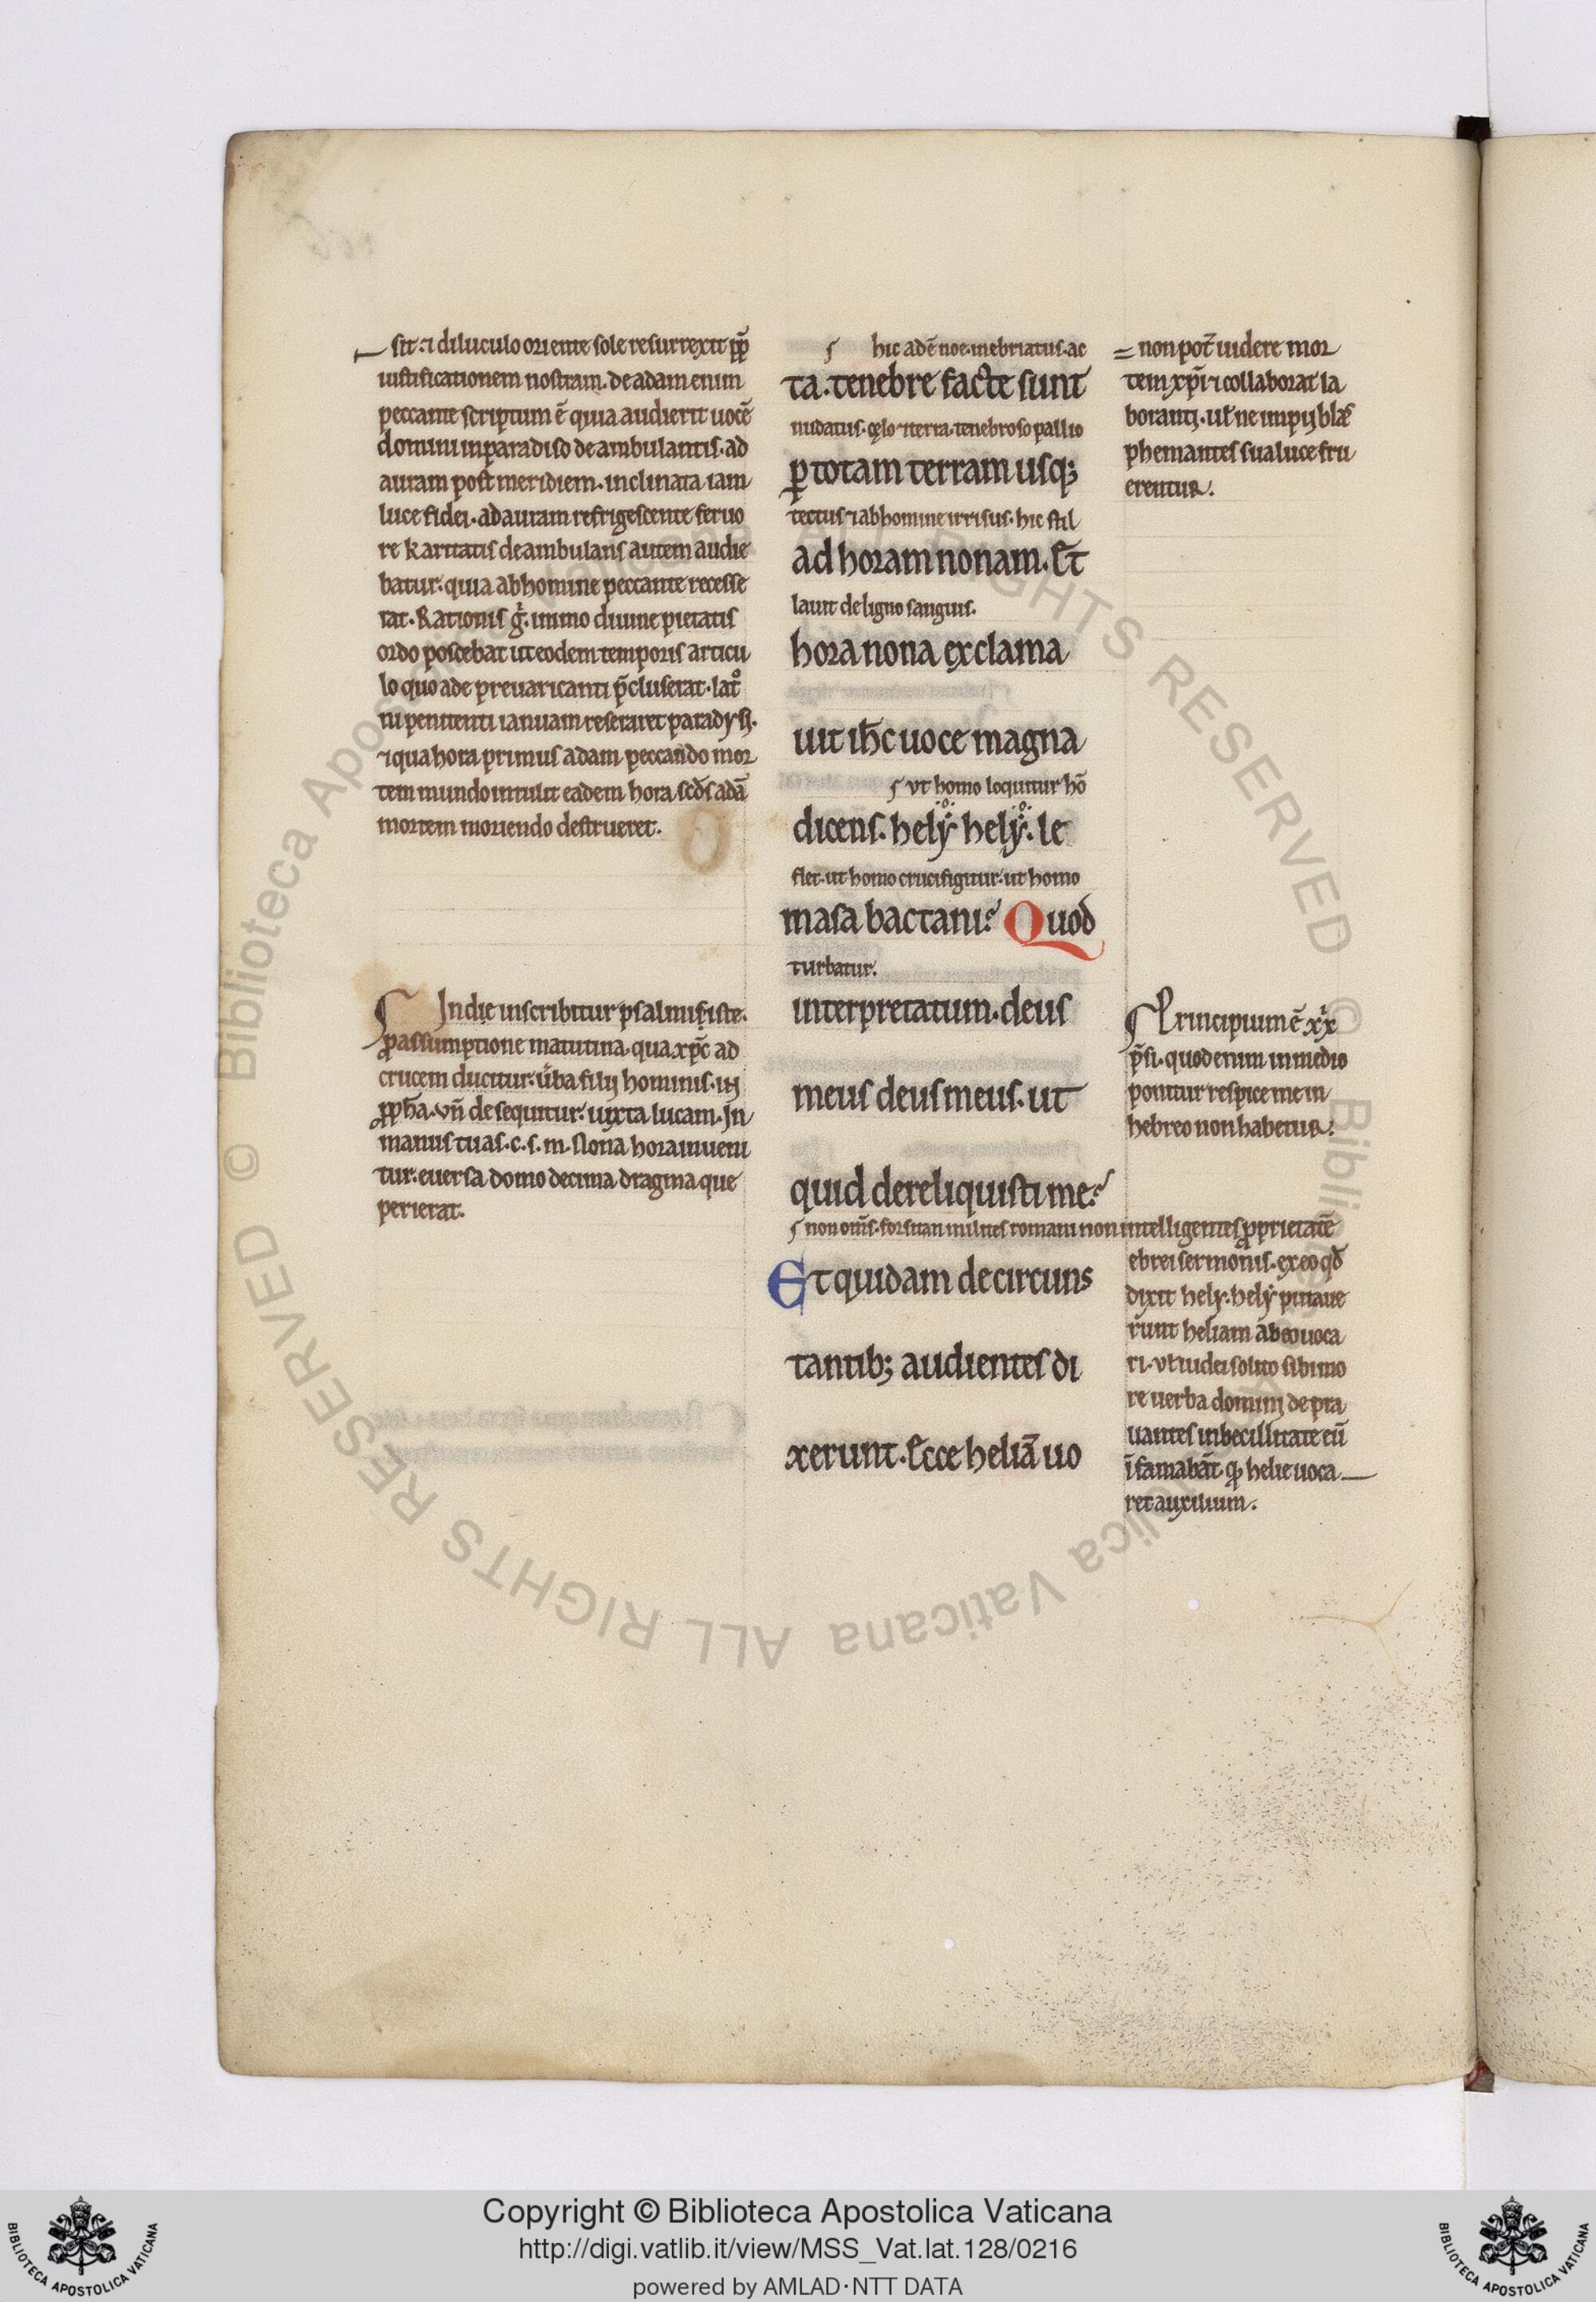 sit. ⁊ diluculo oriente sole resurrexit ꝓp̄
iustificationem nostram. de adam enim
peccante scriptum ē quia audierit uocē
domini in paradiso deambulantis. ad
auram post meridiem. inclinata iam
luce fidei. ad auram refrigescente feruo
re karitatis deambulans autem audie
batur. quia ab homine peccante recesse
rat. Rationis g̊. immo diuine pietatis
ordo poscebat ut eodem temporis articu
lo quo ade preuaricanti p̄cluserat. lat̊
ni penitenti ianuam reseraret paradysi.
⁊ qua hora primus adam peccando mor
tem mundo intulit eadem hora scd̄s adā
mortem moriendo destrueret.
In die inscribitur psalmus iste.
ꝓ assumptione matutina. qua xp̄c ad
crucem ducitur. ũba filij hominis. iij
ꝓpħa. vñ de sequitur. iuxta lucam. In
manus tuas. c. s. m. Nona hora inueni
tur. euersa domo decima dragma que
perierat.
hic ad ē noe. inebriatus. ac
ta. tenebre facte sunt
nudatus. cęlo ⁊ terra. tenebroso pallio
ꝑ totam terram usqꝫ
tectus ⁊ ab homine irrisus. hic stil
ad horam nonam. Et
lauit de ligno sanguis.
hora nona exclama
uit ih̄c uoce magna
vt homo loquitur hō
dicens. hely hely. le
flet. ut homo crucifigitur. ut homo
masabactani? Quod
turbatur.
interpretatum. deus
meus deus meus. ut
quid dereliquisti me?
non om̄s. forsitan milites romani non intelligentes ꝓprietatē
Et quidam de circuns
tantibꝫ audientes di
xerunt. Ecce heliā uo
non pot̄ uidere mor
tem xp̄i ⁊ collaborat la
boranti. ut̄ ne impij blas
phemantes sua luce fru
erentur.
Principium ē xxi
p̄si. quod enim in medio
ponitur respice me in
hebreo non habetur.
ebrei sermonis. ex eo qđ
dixit hely. hely putaue
runt heliam ab eo uoca
ri. vt̄ iudei solito sibi mo
re uerba domini depra
uantes inbecillitate eū
īfamabāt qꝫ helie uoca
ret auxilium.
Copyright © Biblioteca Apostolica Vaticana
http://digi.vatlib.it/view/MSS_Vat.lat.128/0216
powered by AMLAD·NTT DATA